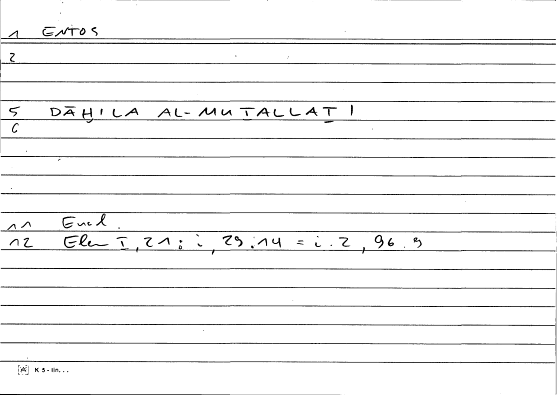 1 ENTOS
2
5 DĀḪILA AL-MUṮALLAṮI
6
11 Eucl.
12 Elem I, 21 : i, 29.14 = i.2, 96.9
K 5 - lin. . .